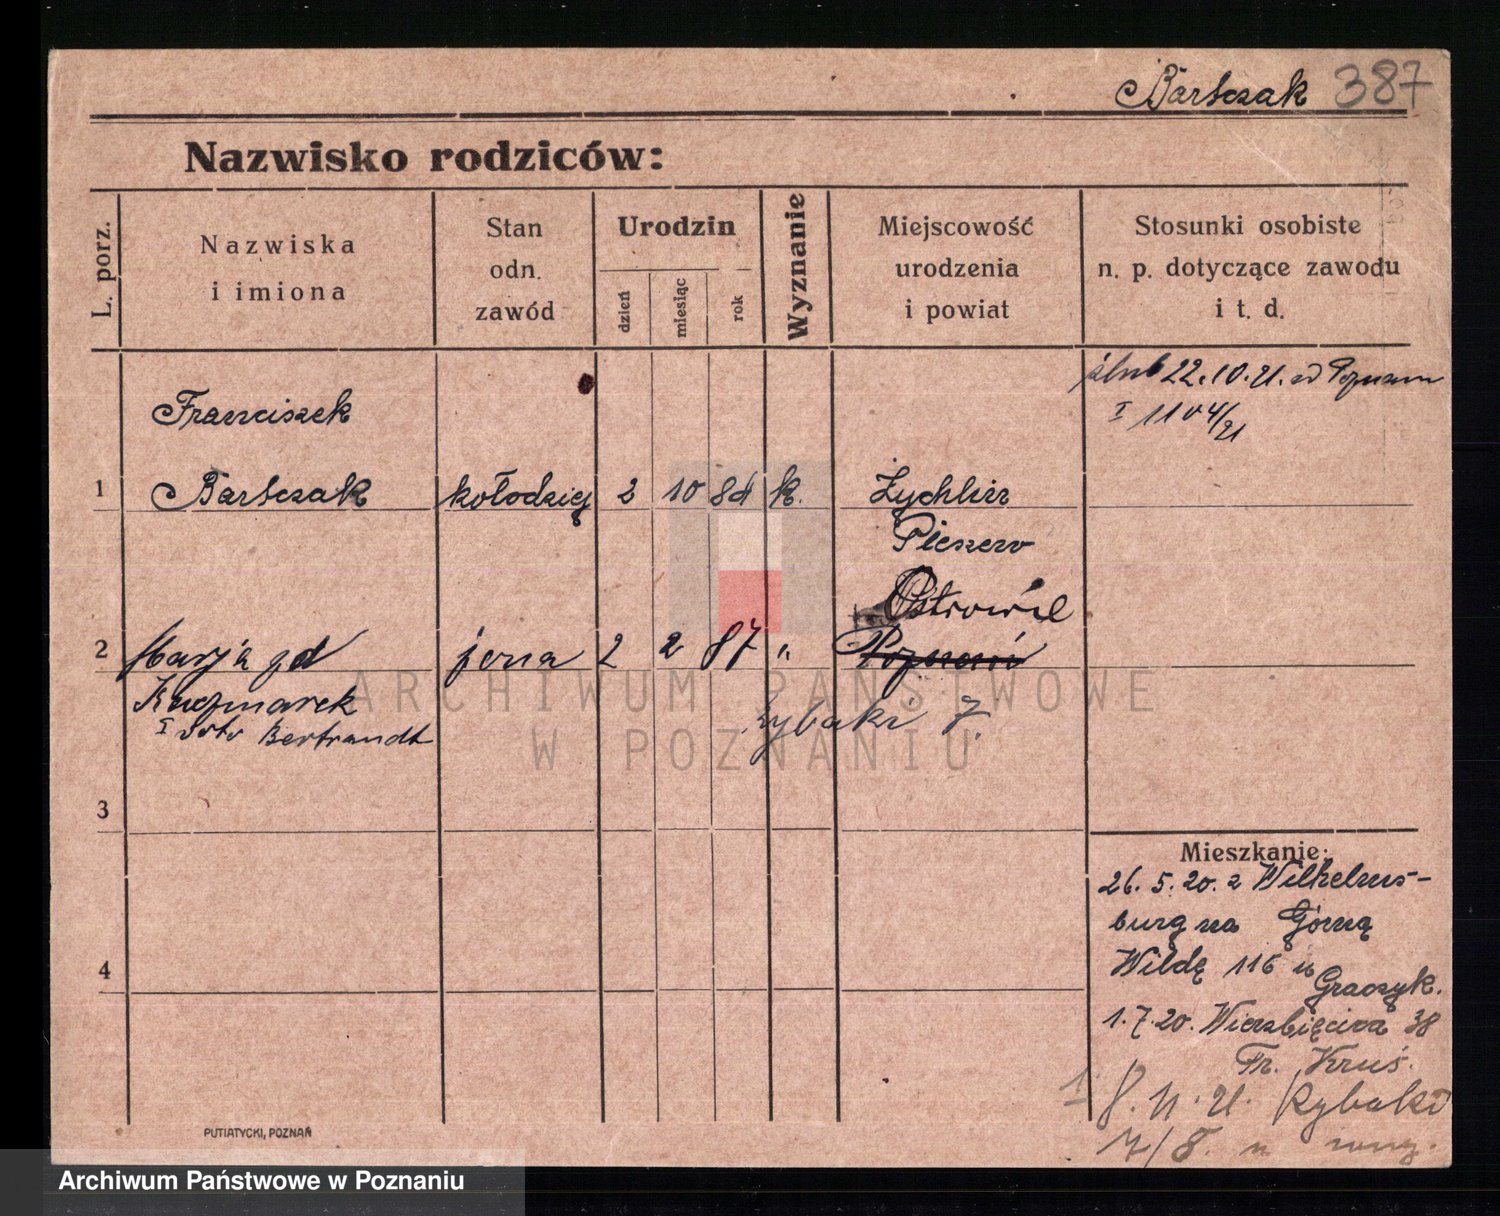 Bartczak 387
Nazwisko rodziców:
L. porz.
Nazwiska
i imiona
Stan
odn.
zawód
Urodzin
dzień
miesiąc
rok
Wyznanie
Miejscowość
urodzenia
i powiat
Stosunki osobiste
n. p. dotyczące zawodu
i t. d.
ślub 22.10.21. Poznań
I 1104/21
Franciszek
1 Bartczak kołodziej 2 10 84 k. Żychlin
Pleszew
Ostrów
2 Marja gd żona 2 2 87 " Poznań
Kaczmarek
I voto Bertrandt
Rybaki 7.
3
Mieszkanie:
26. 5. 20. z Wilhelms-
burg na Górną
4 Wildę 116 u
Graczyk.
1.7.20. Wierzbięcice 38
Fr. Kruś.
1 8.11.21. Rybaki
7/8. u
PUTIATYCKI, POZNAŃ
ARCHIWUM PAŃSTWOWE
W POZNANIU
Archiwum Państwowe w Poznaniu